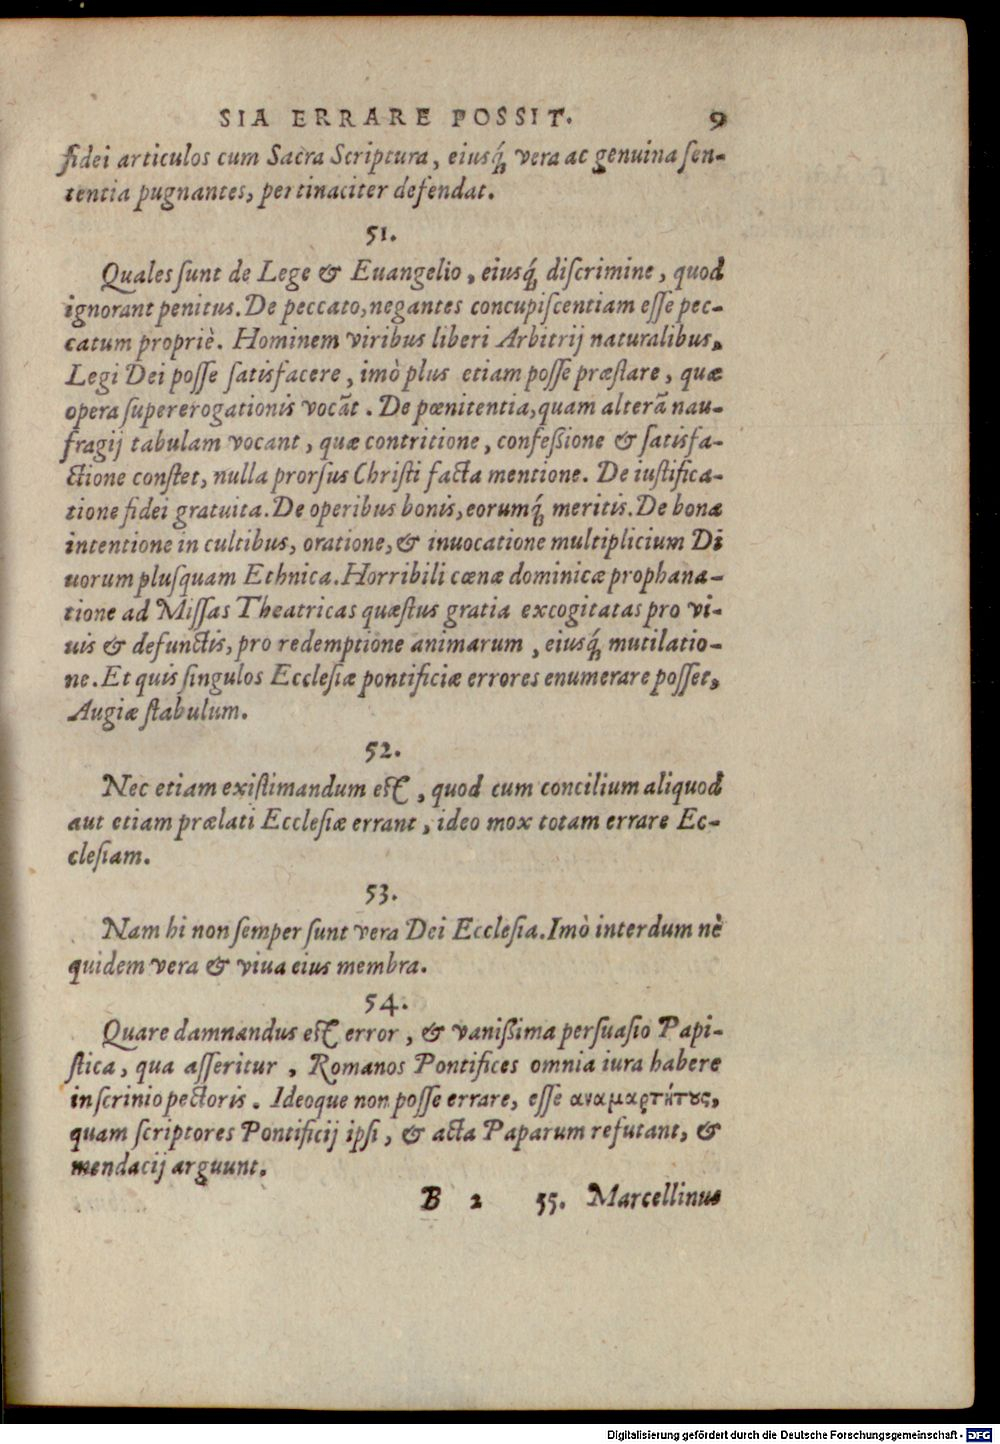 SIA ERRARE POSSIT. 9
fidei articulos cum Sacra Scriptura, eiusq́; vera ac genuina sen-
tentia pugnantes, pertinaciter defendat.
51.
Quales sunt de Lege & Euangelio, eiusq́; discrimine, quod
ignorant penitus. De peccato, negantes concupiscentiam esse pec-
catum propriè. Hominem viribus liberi Arbitrij naturalibus,
Legi Dei posse satisfacere, imò plus etiam posse præstare, quæ
opera supererogationis vocāt. De pœnitentia, quam alterā nau-
fragij tabulam vocant, quæ contritione, confeßione & satisfa-
ctione constet, nulla prorsus Christi facta mentione. De iustifica-
tione fidei gratuita. De operibus bonis, eorumq́; meritis. De bona
intentione in cultibus, oratione, & inuocatione multiplicium Di
uorum plusquam Ethnica. Horribili cœnæ dominicæ prophana-
tione ad Missas Theatricas quæstus gratia excogitatas pro vi-
uis & defunctis, pro redemptione animarum, eiusq́; mutilatio-
ne. Et quis singulos Ecclesiæ pontificiæ errores enumerare posset,
Augiæ stabulum.
52.
Nec etiam existimandum est, quod cum concilium aliquod
aut etiam prælati Ecclesiæ errant, ideo mox totam errare Ec-
clesiam.
53.
Nam hi non semper sunt vera Dei Ecclesia. Imò interdum nè
quidem vera & viua eius membra.
54.
Quare damnandus est error, & vanißima persuasio Papi-
stica, qua asseritur, Romanos Pontifices omnia iura habere
in scrinio pectoris. Ideoque non posse errare, esse αναμαρτήτȣς,
quam scriptores Pontificij ipsi, & acta Paparum refutant, &
mendacij arguunt.
B 2 55. Marcellinus
Digitalisierung gefördert durch die Deutsche Forschungsgemeinschaft - DFG